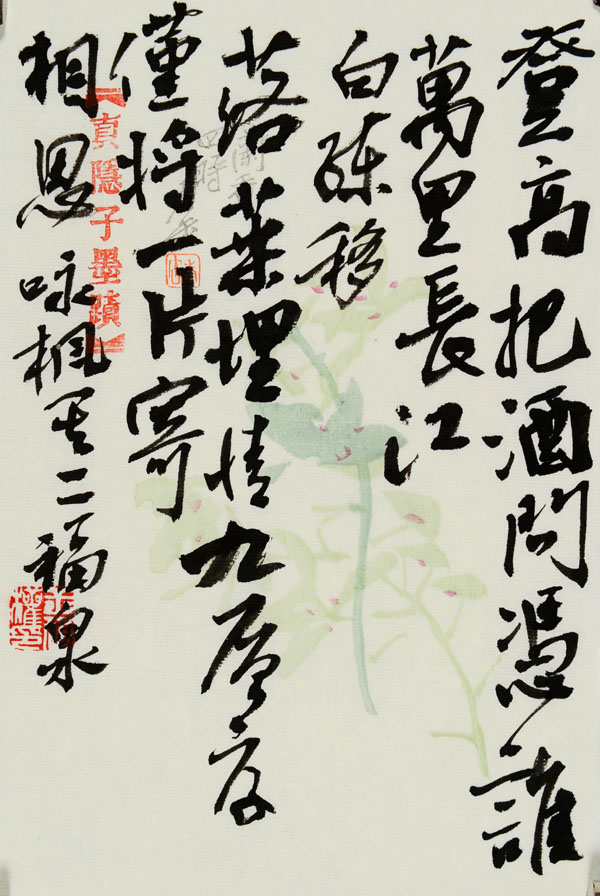 登高把酒問憑誰
萬里長江
白練移
落葉埋情九層厚
僅將一片寄
相思 咏楓其二 福泉
真隱子墨蹟